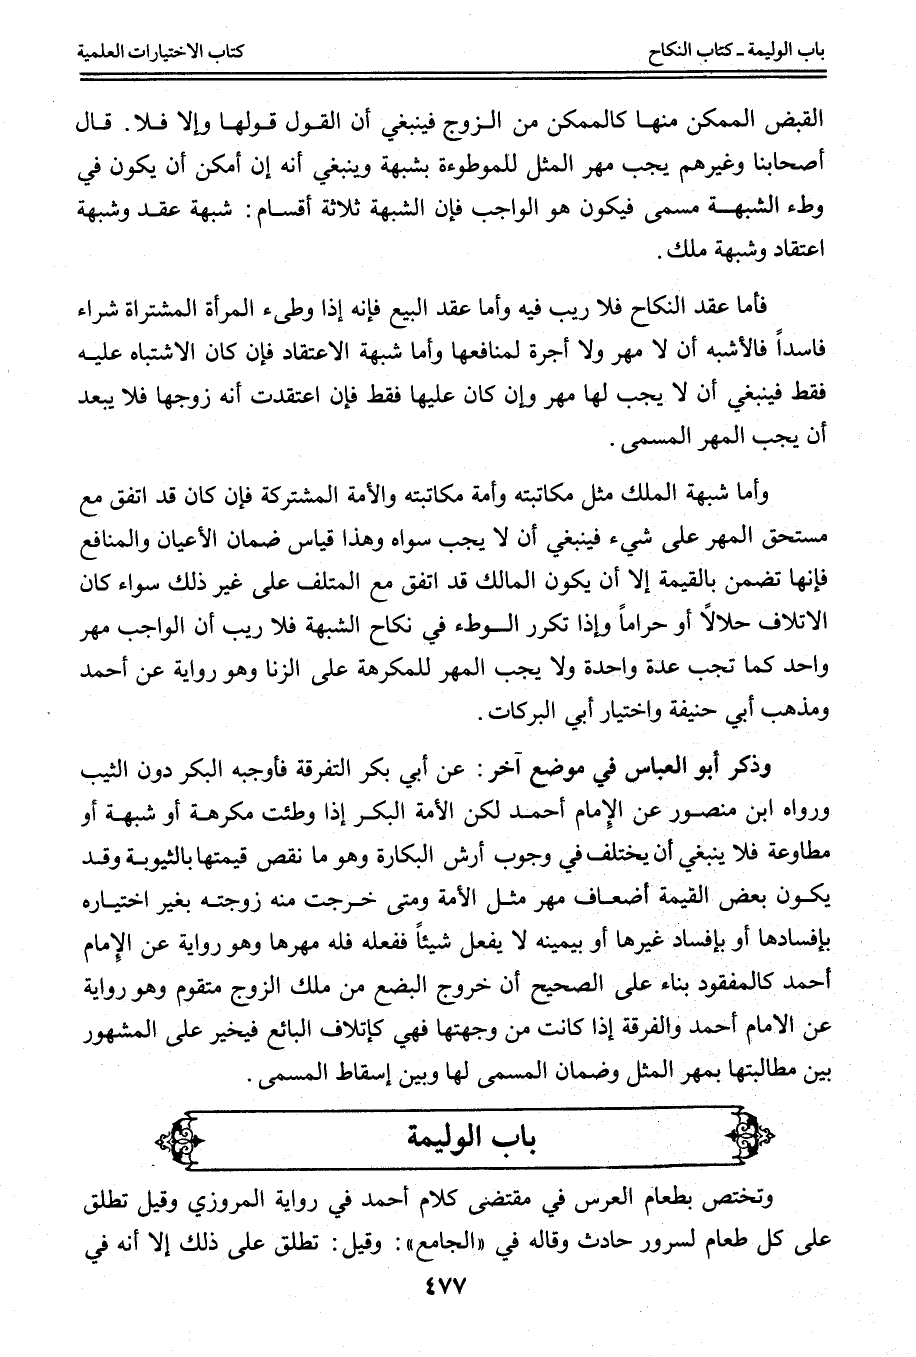 باب الوليمة ـ كتاب النكاح
كتاب الاختيارات العلمية
القبض الممكن منهـا كالممكن من الـزوج فينبغي أن القـول قولهـا وإلا فـلا. قـال
أصحابنا وغيرهم يجب مهر المثل للموطوءة بشبهة وينبغي أنه إن أمكن أن يكون في
وطء الشبهـــة مسمى فيكون هو الواجب فإن الشبهة ثلاثة أقسـام: شبهة عقـد وشبهة
اعتقاد وشبهة ملك.
فأما عقد النكاح فلا ريب فيه وأما عقد البيع فإنه إذا وطىء المرأة المشتراة شراء
فاسداً فالأشبه أن لا مهر ولا أجرة لمنافعها وأما شبهة الاعتقاد فإن كان الاشتباه عليـه
فقط فينبغي أن لا يجب لها مهر وإن كان عليها فقط فإن اعتقدت أنه زوجها فلا يبعد
أن يجب المهر المسمى.
وأما شبهة الملك مثل مكاتبته وأمة مكاتبته والأمة المشتركة فإن كان قد اتفق مع
مستحق المهر على شيء فينبغي أن لا يجب سواه وهذا قياس ضمان الأعيان والمنافع
فإنها تضمن بالقيمة إلا أن يكون المالك قد اتفق مع المتلف على غير ذلك سواء كان
الاتلاف حلالاً أو حراماً وإذا تكرر الــوطء في نكاح الشبهة فلا ريب أن الواجب مهر
واحد كما تجب عدة واحدة ولا يجب المهر للمكرهة على الزنا وهو رواية عن أحمد
ومذهب أبي حنيفة واختيار أبي البركات.
وذكر أبو العباس في موضع آخر: عن أبي بكر التفرقة فأوجبه البكر دون الثيب
ورواه ابن منصـور عن الإمام أحمـد لكن الأمة البكـر إذا وطئت مكرهـة أو شبهـة أو
مطاوعة فلا ينبغي أن يختلف في وجوب أرش البكارة وهو ما نقص قيمتها بالثيوبـة وقـد
يكـون بعض القيمة أضعـاف مهر مثـل الأمة ومتى خـرجت منه زوجتـه بغير اختيـاره
بإفسادها أو بإفساد غيرها أو بيمينه لا يفعل شيئاً ففعله فله مهرها وهو رواية عن الإمام
أحمد كالمفقود بناء على الصحيح أن خروج البضع من ملك الزوج متقوم وهو رواية
عن الامام أحمد والفرقة إذا كانت من وجهتها فهي كإتلاف البائع فيخير على المشهور
بين مطالبتها بمهر المثل وضمان المسمى لها وبين إسقاط المسمى.
باب الوليمة
وتختص بطعام العرس في مقتضى كلام أحمد في رواية المروزي وقيل تطلق
على كل طعام لسرور حادث وقاله في «الجامع»: وقيل: تطلق على ذلك إلا أنه في
٤٧٧